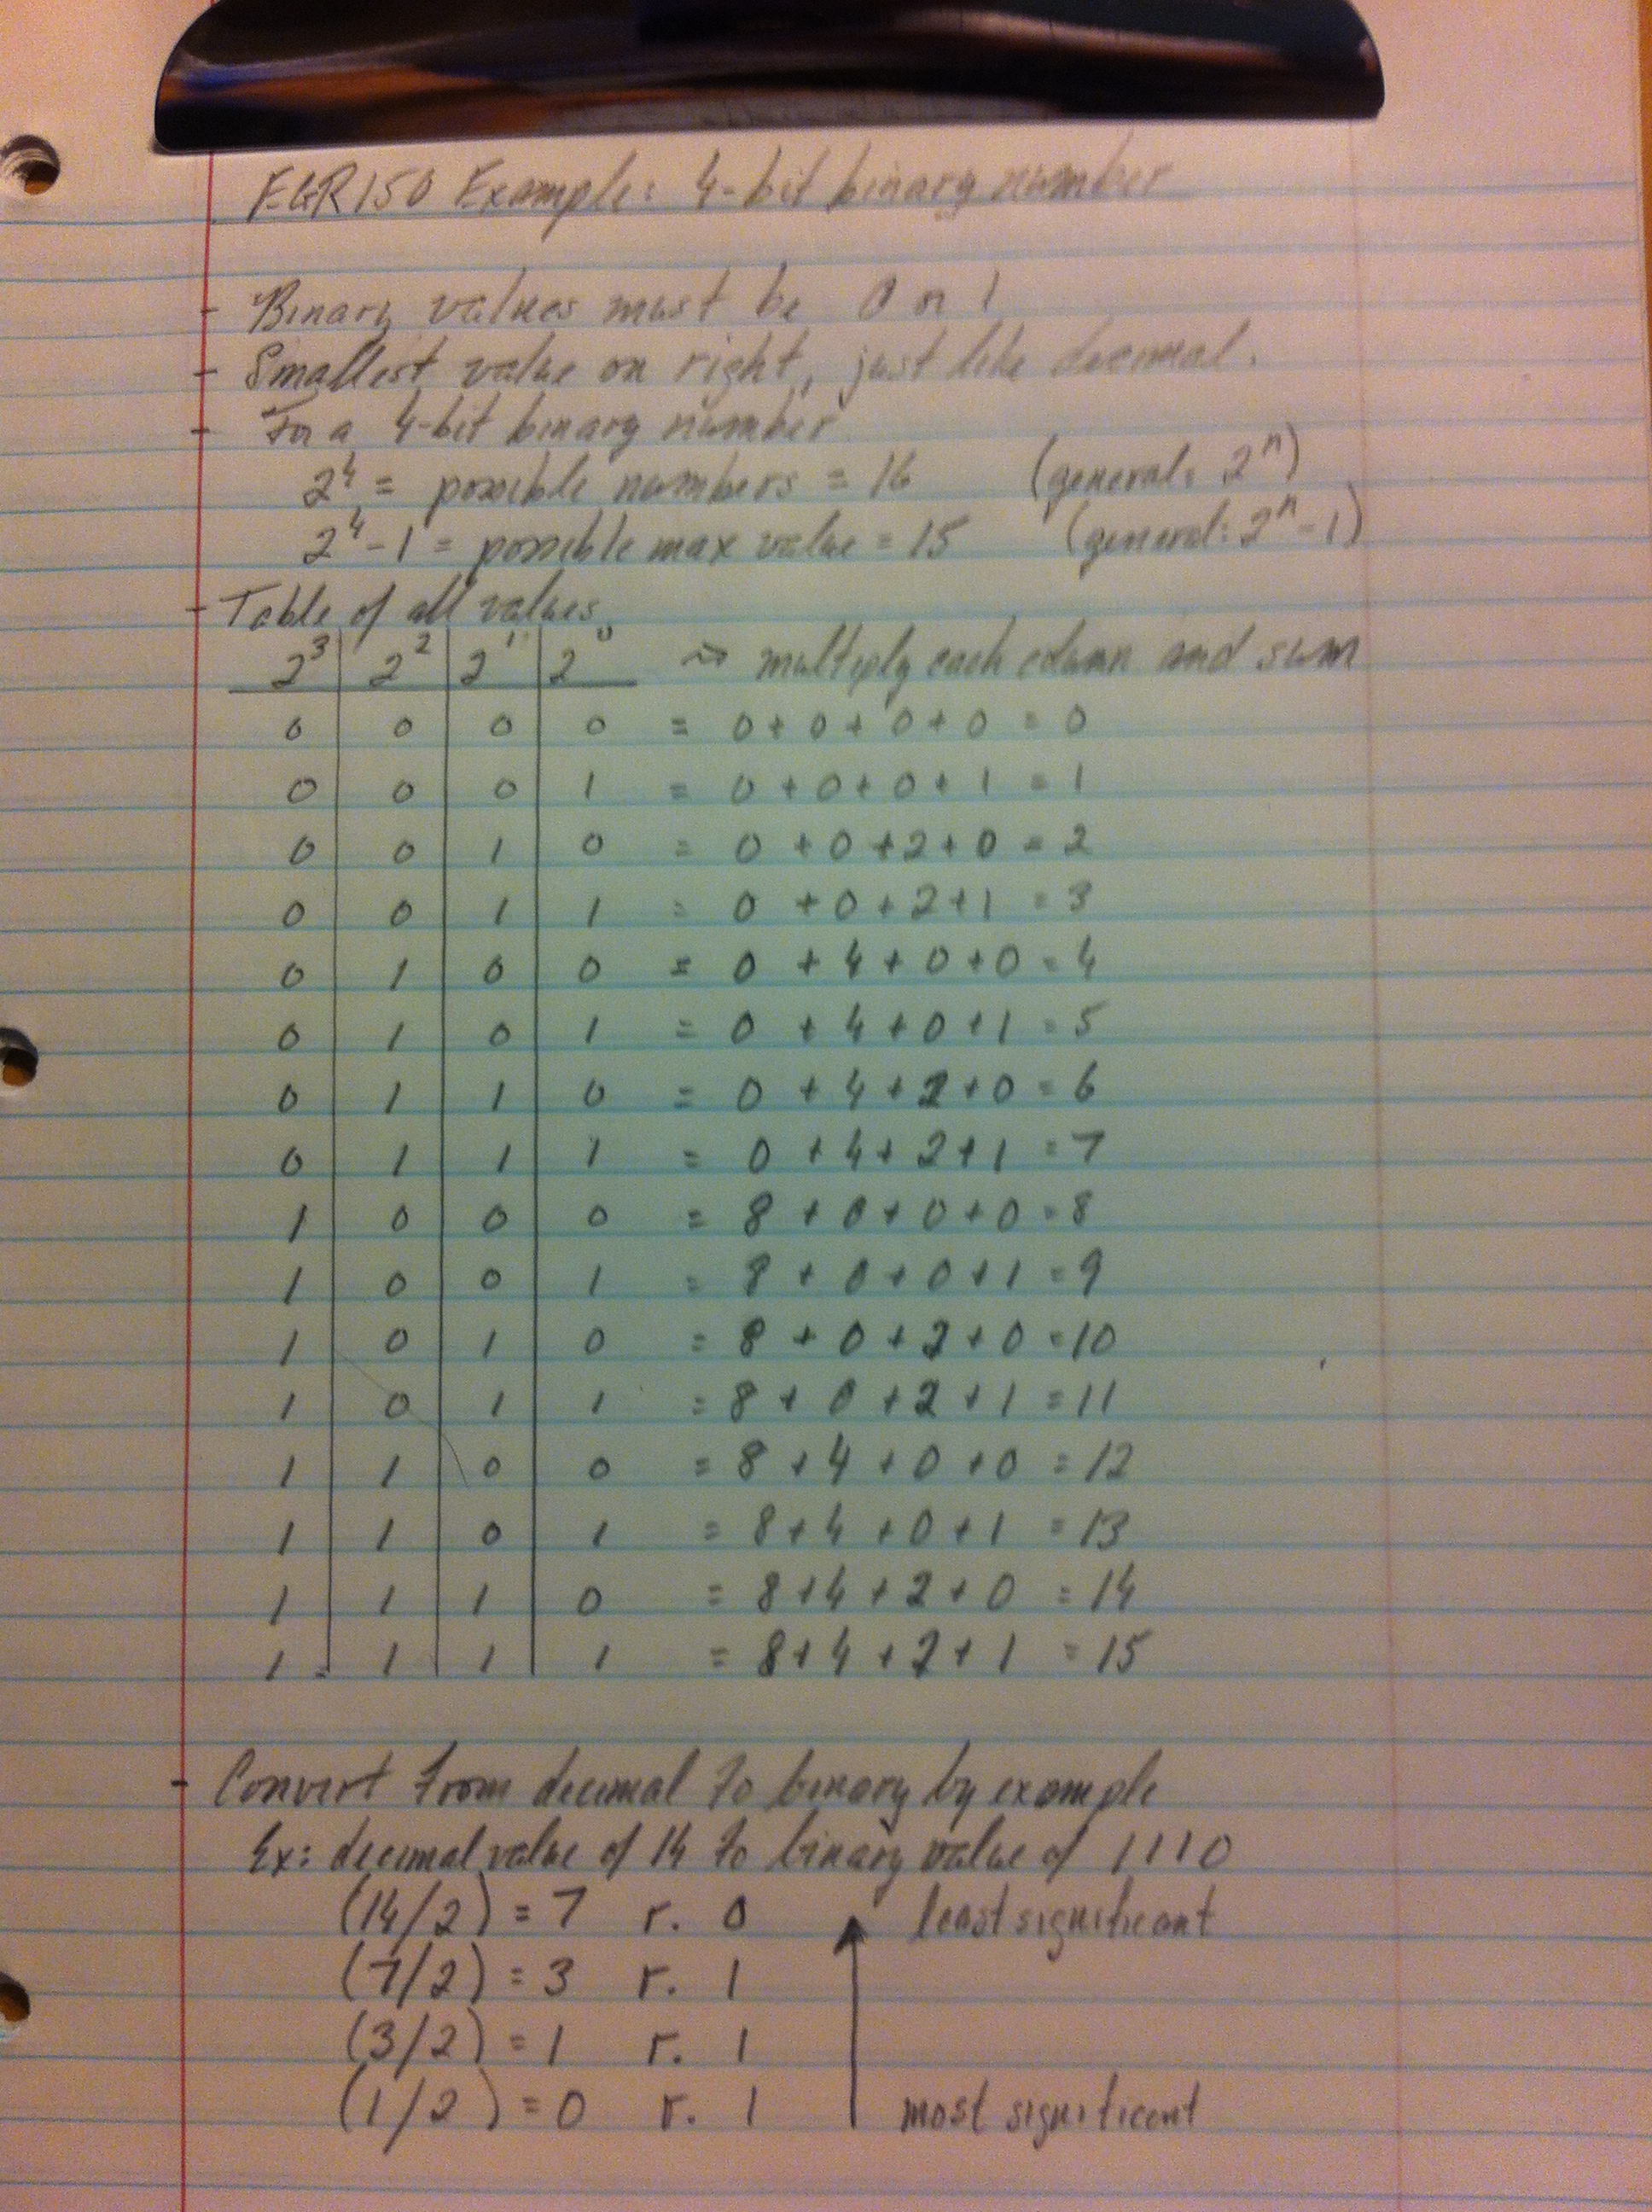 EGR150 Example: 4-bit binary number
- Binary values must be 0 or 1
- Smallest value on right, just like decimal.
- For a 4-bit binary number
2⁴ = possible numbers = 16 (general: 2ⁿ)
2⁴-1 = possible max value = 15 (general: 2ⁿ-1)
- Table of all values.
2³ | 2² | 2¹ | 2⁰ ~> multiply each column and sum
0 0 0 0 = 0+0+0+0 = 0
0 0 0 1 = 0+0+0+1 = 1
0 0 1 0 = 0+0+2+0 = 2
0 0 1 1 = 0+0+2+1 = 3
0 1 0 0 = 0+4+0+0 = 4
0 1 0 1 = 0+4+0+1 = 5
0 1 1 0 = 0+4+2+0 = 6
0 1 1 1 = 0+4+2+1 = 7
1 0 0 0 = 8+0+0+0 = 8
1 0 0 1 = 8+0+0+1 = 9
1 0 1 0 = 8+0+2+0 = 10
1 0 1 1 = 8+0+2+1 = 11
1 1 0 0 = 8+4+0+0 = 12
1 1 0 1 = 8+4+0+1 = 13
1 1 1 0 = 8+4+2+0 = 14
1 1 1 1 = 8+4+2+1 = 15
- Convert from decimal to binary by example
Ex: decimal value of 14 to binary value of 1110
(14/2) = 7 r. 0 least significant
(7/2) = 3 r. 1
(3/2) = 1 r. 1
(1/2) = 0 r. 1 most significant